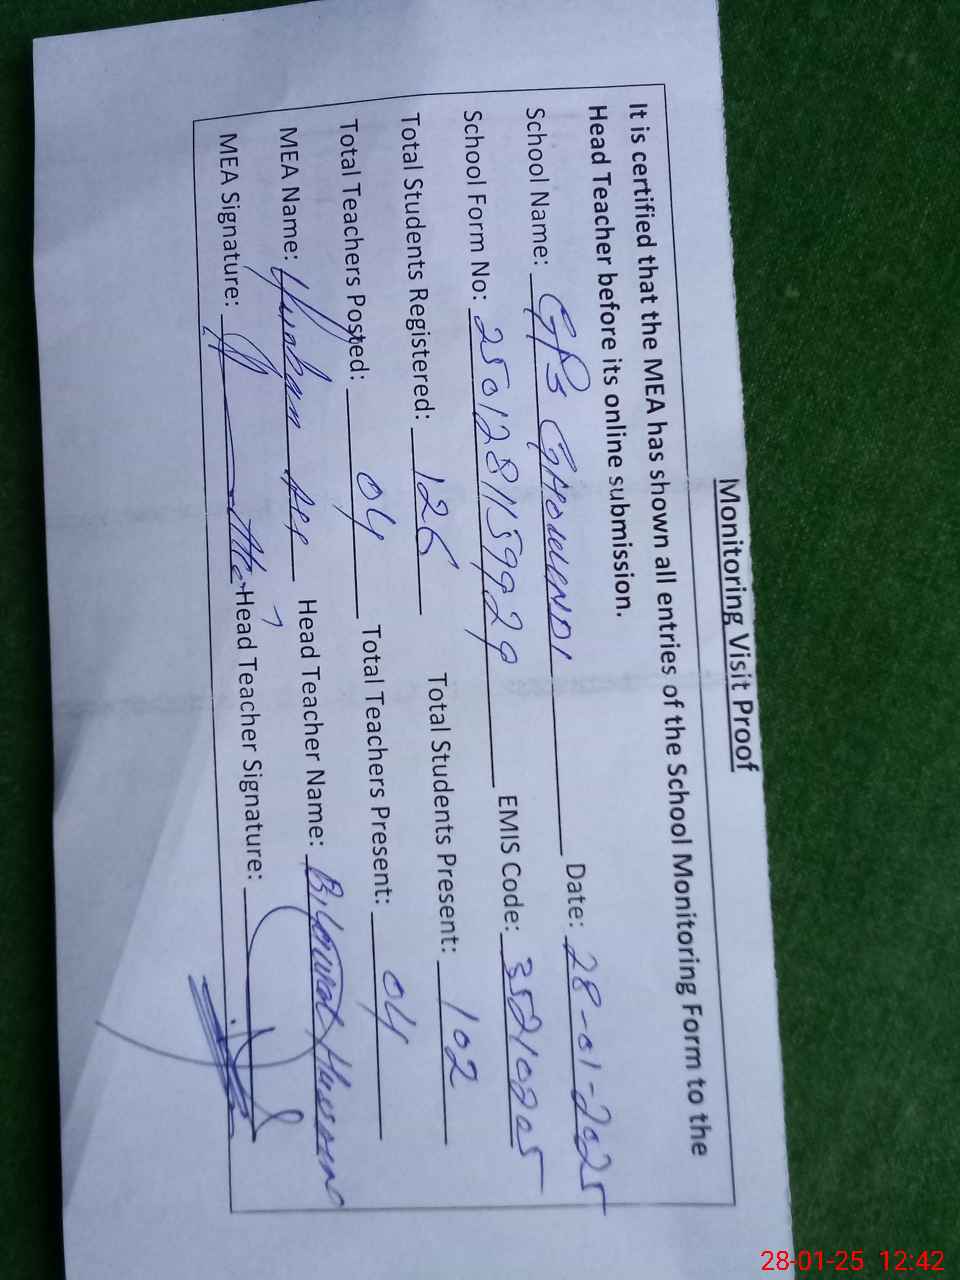 Monitoring Visit Proof
It is certified that the MEA has shown all entries of the School Monitoring Form to the
Head Teacher before its online submission.
School Name: GPS Date: 28-01-2025
School Form No: 2501281159929 EMIS Code: 35210205
Total Students Registered: 126 Total Students Present: 102
Total Teachers Posted: 04 Total Teachers Present: 04
MEA Name: Head Teacher Name: Hussain
MEA Signature: Head Teacher Signature:
28-01-25 12:42